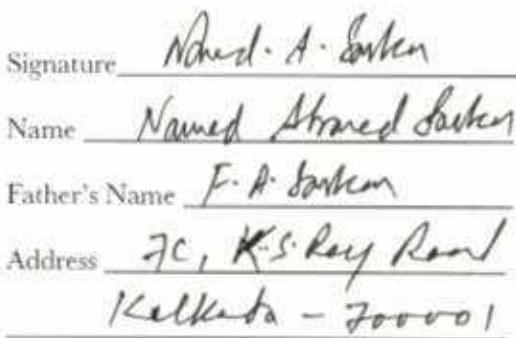 Signature Naved. A. Sarkar
Name Naved Ahmed Sarkar
Father's Name F. A. Sarkar
Address 7C, K.S. Roy Road
Kolkata - 700001